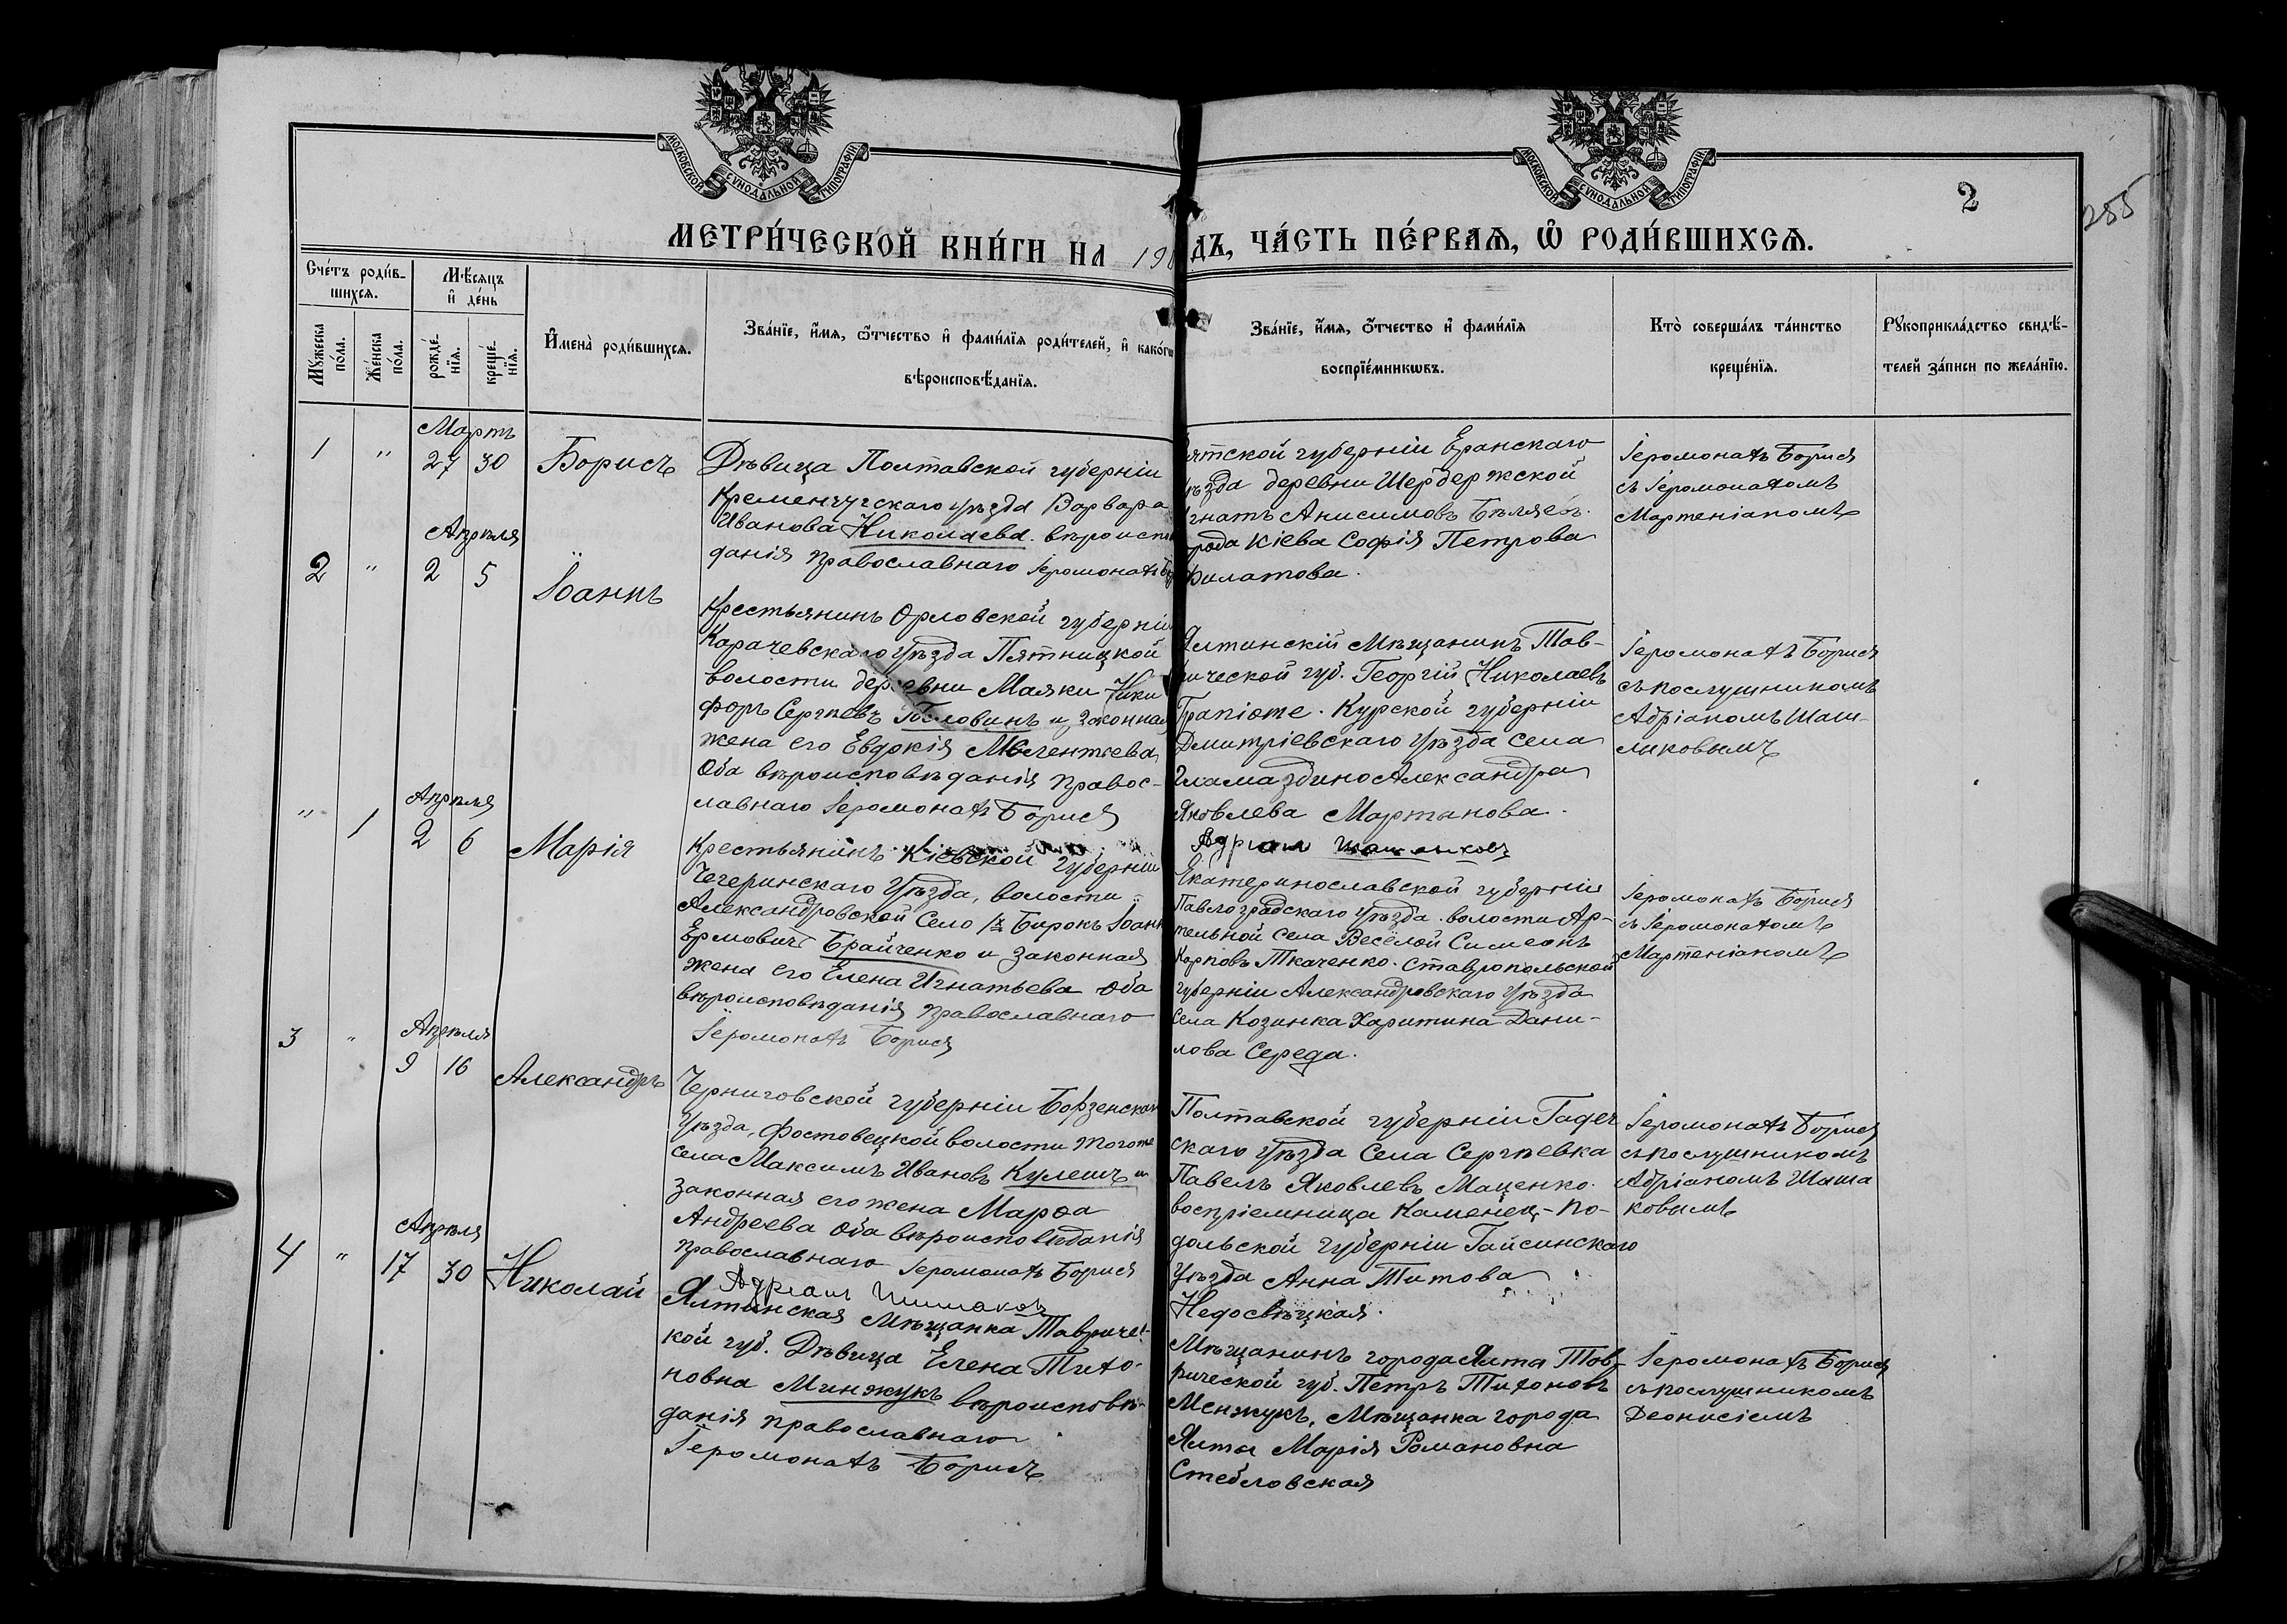 МОСКОВСКОЙ СѴНОДАЛЬНОЙ ТИПОГРАФІИ
МОСКОВСКОЙ СѴНОДАЛЬНОЙ ТИПОГРАФІИ
2
255
МЕТРИ́ЧЕСКОЙ КНИ́ГИ НА 19
ДЪ, ЧА́СТЬ ПЕ́РВАѦ, Ѽ РОДИ́ВШИХСѦ.
Сче́тъ роди́в-
шихсѧ.
Мꙋжеска по́ла.
Же́нска по́ла.
Мѣ́сѧцъ
и҆ де́нь
рожде́-
нїѧ.
креще́-
нїѧ.
И҆мена̀ роди́вшихсѧ.
Зва́нїе, и҆́мѧ, ѻ҆́тчество и҆ фами́лїѧ роди́телей, и҆ како́гѡ
вѣроисповѣ́данїѧ.
Зва́нїе, и҆́мѧ, ѻ҆́тчество и҆ фами́лїѧ
воспрїе́мникѡвъ.
Кто̀ соверша́лъ та́инство
креще́нїѧ.
Рꙋкоприкла́дство свидѣ́-
телей за́писи по жела́нїю.
Мартъ
1 " 27 30 Борисъ
Дѣвица Полтавской губерніи
Кременчугскаго уѣзда Варвара
Иванова Николаева. вѣроиспо
данія православнаго Іеромонахъ
ятской губерніи Еранскаго
ѣзда деревни Шердержской
гнатъ Анисимовъ Бѣляевъ.
рода Кіева Софія Петрова
Филатова.
Іеромонахъ Борися
съ Іеромонахомъ
Мартеніаномъ
Апрѣля
2 " 2 5 Іоаннъ
Крестьянинъ Орловской губерніи
Карачевскаго уѣзда Пятницкой
волости деревни Маяки Ники
форъ Сергѣевъ Гословинъ и законная
жена его Евдокія Мелентьева
Оба вѣроисповѣданія правос-
лавнаго Іеромонахъ Борися
Ялтинскій Мѣщанинъ Тав-
рической губ. Георгій Николаевъ
Трапіоте. Курской губерніи
Дмитріевскаго уѣзда села
Гламаздино Александра
Яковлева Мартанова.
Адриан Шашликовъ
Іеромонахъ Борися
съ послушникомъ
Адріаномъ Шаш-
ликовымъ
Апрѣля
" 1 2 6 Марія
Крестьянинъ Кіевской губерніи
Чегеринскаго уѣзда, волости
Александровской Село Бирокъ Іоанн
Ермовичъ Брайченко и законная
жена его Елена Игнатьева Оба
вѣроисповѣданія православнаго
Іеромонахъ Борися
Екатеринославской губерніи
Павлоградскаго уѣзда. волости Ар-
тельной села Весёлой Симеонъ
Карповъ Ткаченко. Ставропольской
губерніи Александровскаго уѣзда
Села Козинка Харитина Дани-
лова Середа.
Іеромонахъ Борися
съ Іеромонахомъ
Мартеніаномъ
Апрѣля
3 " 9 16 Александръ
Черниговской губерніи Борзенскаго
уѣзда, Фостовецкой волости тогоже
села Максимъ Ивановъ Кулешъ и
законная его жена Марѳа
Андреева Оба вѣроисповѣданія
православнаго Іеромонахъ Борися
Адриан Шишаков
Полтавской губерніи Гадеч
скаго уѣзда Села Сергѣевка
Павелъ Яковлевъ Маценко.
воспріемница Каменец-По-
дольской губерніи Гайсинскаго
Уѣзда Анна Титова
Недосвѣцкая.
Іеромонахъ Борися
съ послушникомъ
Адріаномъ Шаша
ковымъ
Апрѣля
4 " 17 30 Николай
Ялтинская Мѣщанка Тавриче-
кой губ. Дѣвица Елена Тихо-
новна Минжукъ вѣроисповѣ-
данія православнаго
Іеромонахъ Борисъ
Мѣщанинъ города Ялта Тав-
рической губ. Петръ Тихоновъ
Менжукъ, Мѣщанка города
Ялты Марія Романовна
Стебловская
Іеромонахъ Борися
съ послушникомъ
Деонисіемъ